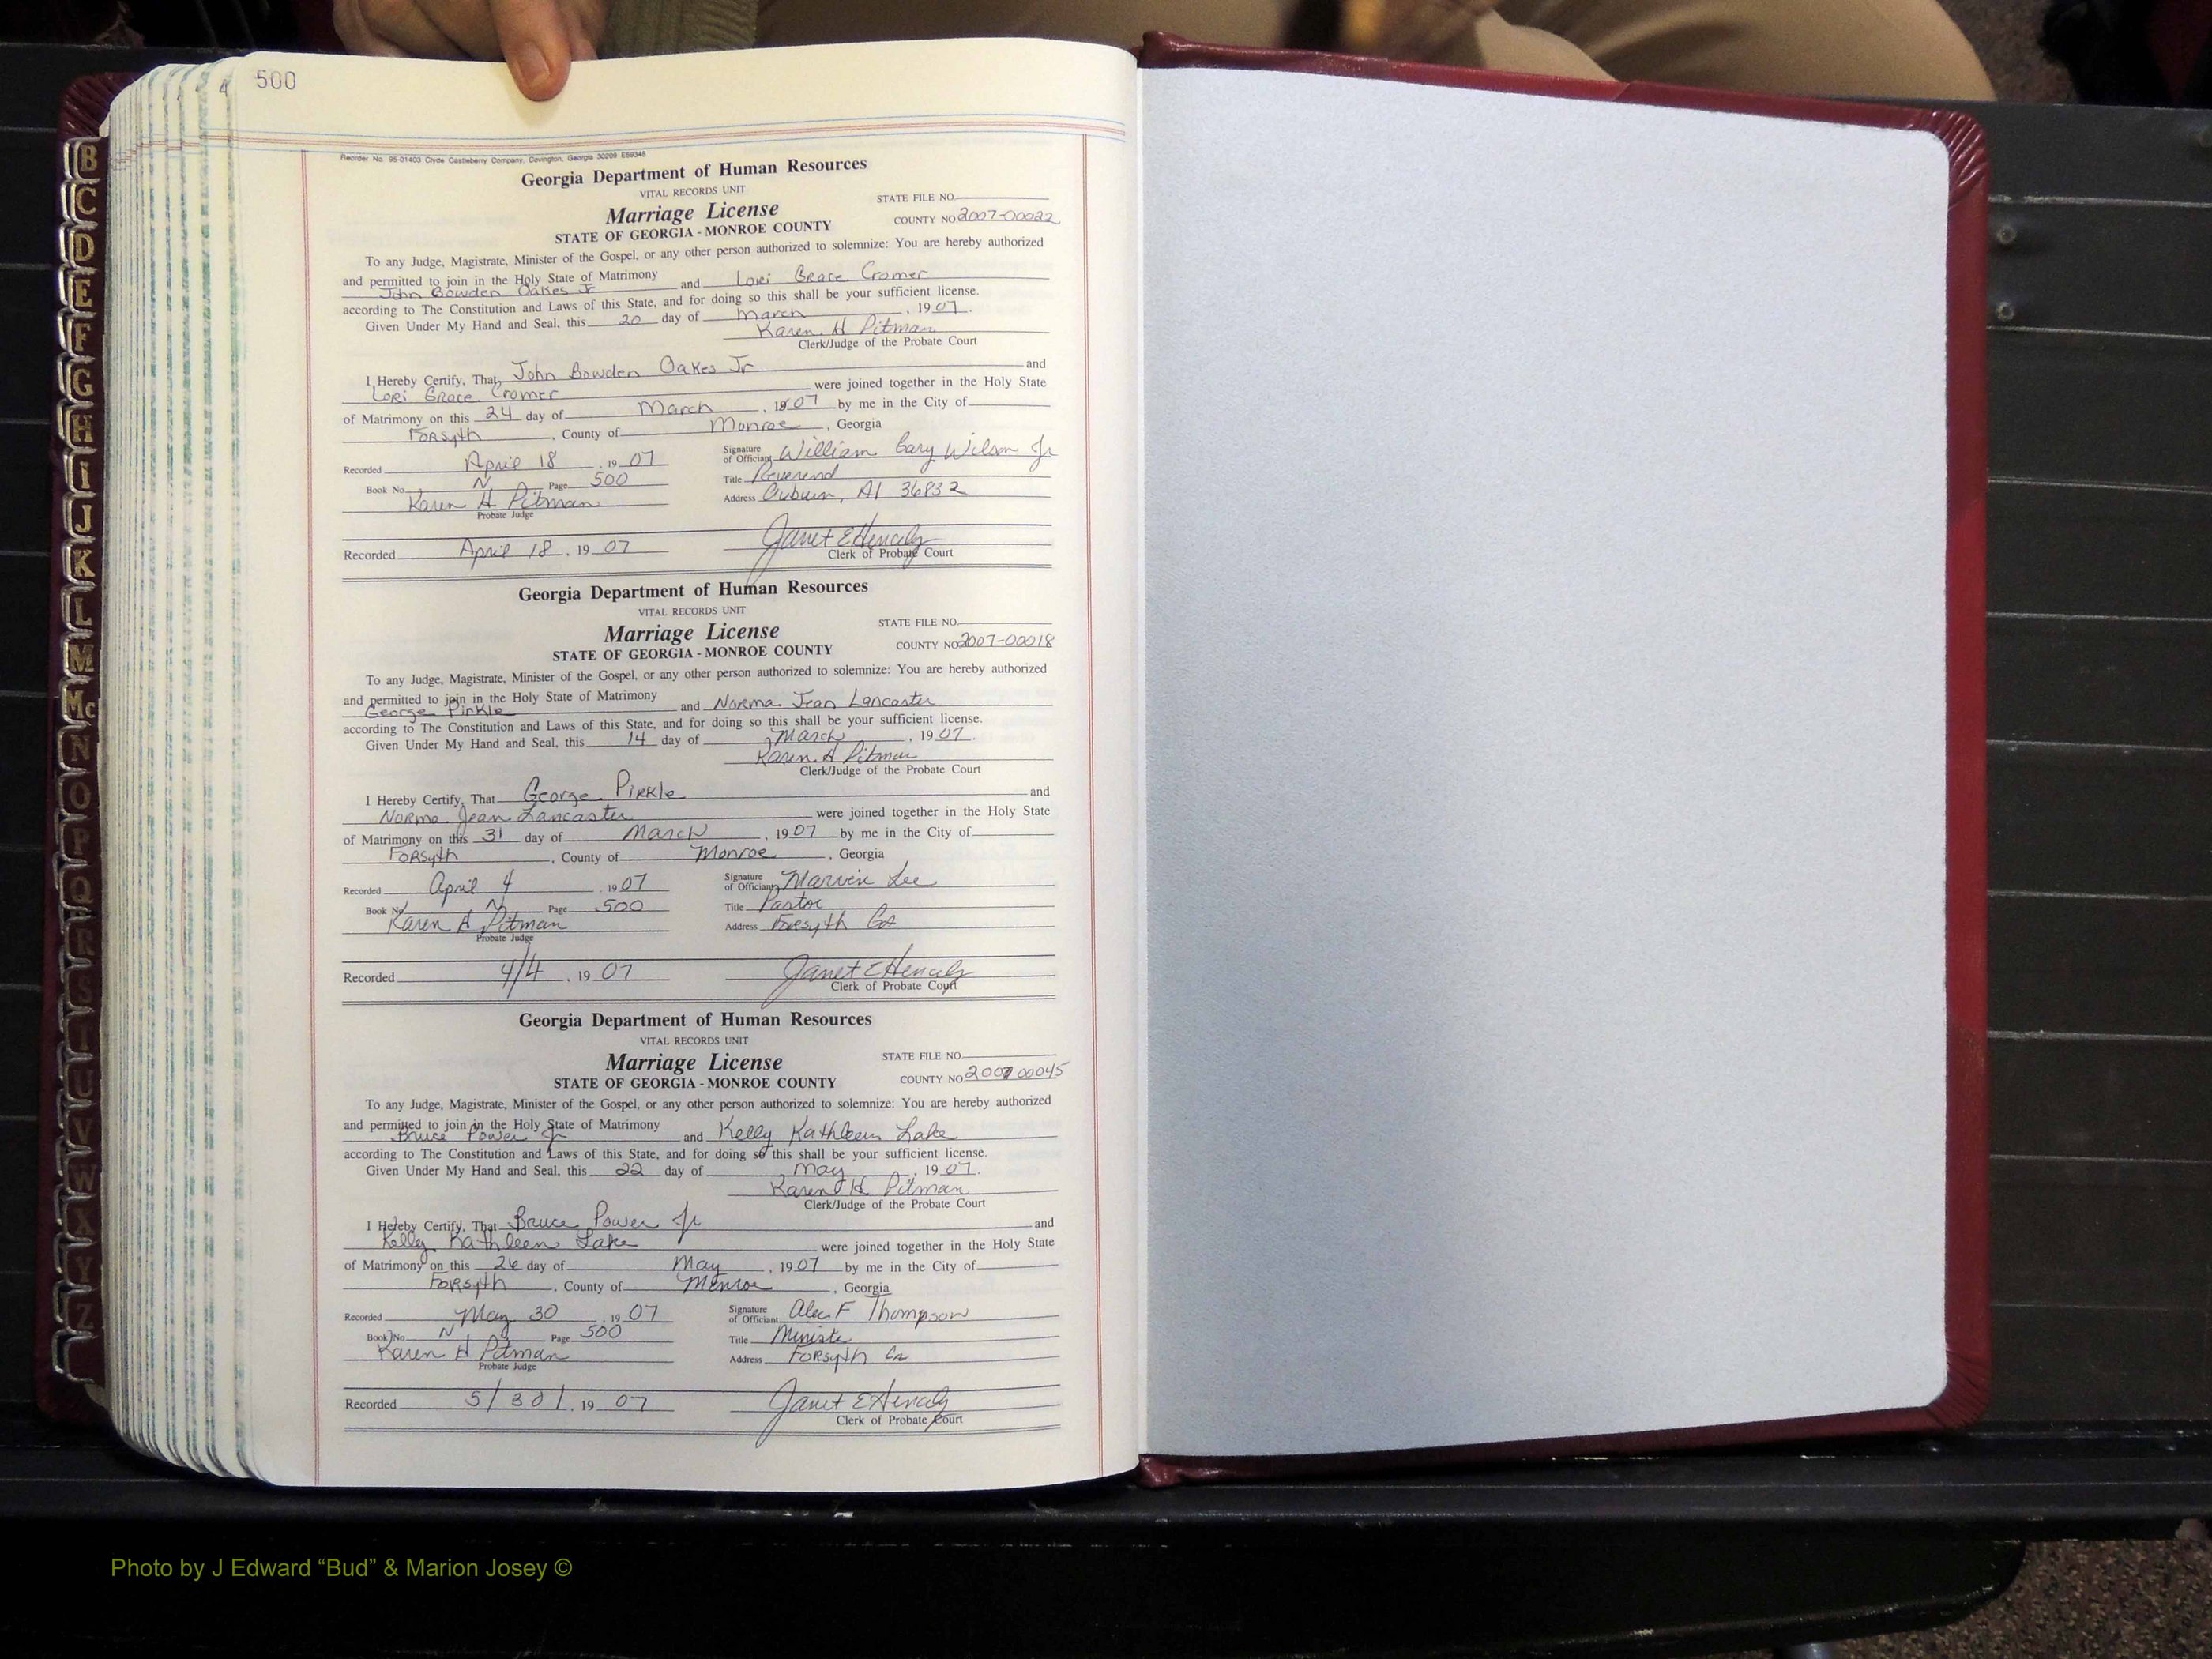 500
4
Recorder No. 95-01403 Clyde Castleberry Company, Covington, Georgia 30209 E59348
Georgia Department of Human Resources
VITAL RECORDS UNIT
STATE FILE NO.
Marriage License
COUNTY NO 2007-00022
STATE OF GEORGIA - MONROE COUNTY
To any Judge, Magistrate, Minister of the Gospel, or any other person authorized to solemnize: You are hereby authorized
and permitted to join in the Holy State of Matrimony
John Bowden Oakes Jr and Lori Grace Cromer
according to The Constitution and Laws of this State, and for doing so this shall be your sufficient license.
Given Under My Hand and Seal, this 20 day of March, 19 07.
Karen H Pitman
Clerk/Judge of the Probate Court
I Hereby Certify, That John Bowden Oakes Jr and
Lori Grace Cromer were joined together in the Holy State
of Matrimony on this 24 day of March, 19 07 by me in the City of
Forsyth, County of Monroe, Georgia
Recorded April 18, 19 07 Signature of Officiant William Gary Wilson Jr
Book No. N Page 500 Title Reverend
Karen H Pitman Address Auburn, Al 36832
Probate Judge
Recorded April 18, 19 07 Janet E Hencely
Clerk of Probate Court
Georgia Department of Human Resources
VITAL RECORDS UNIT
STATE FILE NO.
Marriage License
COUNTY NO 2007-00018
STATE OF GEORGIA - MONROE COUNTY
To any Judge, Magistrate, Minister of the Gospel, or any other person authorized to solemnize: You are hereby authorized
and permitted to join in the Holy State of Matrimony
George Pirkle and Norma Jean Lancaster
according to The Constitution and Laws of this State, and for doing so this shall be your sufficient license.
Given Under My Hand and Seal, this 14 day of March, 19 07.
Karen H Pitman
Clerk/Judge of the Probate Court
I Hereby Certify, That George Pirkle and
Norma Jean Lancaster were joined together in the Holy State
of Matrimony on this 31 day of March, 19 07 by me in the City of
Forsyth, County of Monroe, Georgia
Recorded April 4, 19 07 Signature of Officiant Marvin Lee
Book No. N Page 500 Title Pastor
Karen H Pitman Address Forsyth Ga
Probate Judge
Recorded 4/4, 19 07 Janet E Hencely
Clerk of Probate Court
Georgia Department of Human Resources
VITAL RECORDS UNIT
STATE FILE NO.
Marriage License
COUNTY NO. 2007 00045
STATE OF GEORGIA - MONROE COUNTY
To any Judge, Magistrate, Minister of the Gospel, or any other person authorized to solemnize: You are hereby authorized
and permitted to join in the Holy State of Matrimony
Bruce Power Jr and Kelly Kathleen Lake
according to The Constitution and Laws of this State, and for doing so this shall be your sufficient license.
Given Under My Hand and Seal, this 22 day of May, 19 07.
Karen H. Pitman
Clerk/Judge of the Probate Court
I Hereby Certify, That Bruce Power Jr and
Kelly Kathleen Lake were joined together in the Holy State
of Matrimony on this 26 day of May, 19 07 by me in the City of
Forsyth, County of Monroe, Georgia
Recorded May 30, 19 07 Signature of Officiant Alec F Thompson
Book No. N Page 500 Title Ministe
Karen H Pitman Address Forsyth Ga
Probate Judge
Recorded 5/30/, 19 07 Janet E Hencely
Clerk of Probate Court
B
C
D
E
F
G
H
I
J
K
L
M
Mc
N
O
P
Q
R
S
T
U
V
W
X
Y
Z
Photo by J Edward “Bud” & Marion Josey ©